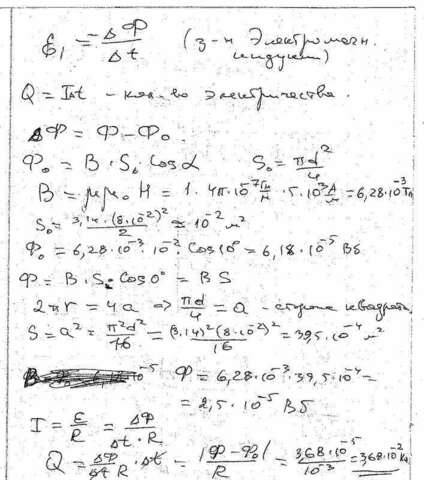 ε₁ = -ΔΦ/Δt (з-н Электромагн. индукции)
Q = I·Δt - кол-во электричества.
ΔΦ = Φ - Φ₀
Φ₀ = B · S₀ · cosα S₀ = πd²/4
B = μμ₀H = 1 · 4π·10⁻⁷ Гн/м · 5·10³ А/м = 6,28·10⁻³ Тл
S₀ = 3,14·(8·10⁻²)²/2 = 10⁻² м²
Φ₀ = 6,28·10⁻³·10⁻²·cos10° = 6,18·10⁻⁵ Вб
Φ = B · S · cos0° = BS
2πr = 4a => πd/4 = a - сторона квадрата.
S = a² = π²d²/16 = (3.14)²(8·10⁻²)²/16 = 39,5·10⁻⁴ м²
Φ = 6,28·10⁻³·39,5·10⁻⁴ =
= 2,5·10⁻⁵ Вб
I = ε/R = ΔΦ/Δt·R
Q = ΔΦ/Δt R · Δt = |Φ-Φ₀|/R = 3,68·10⁻⁵/10⁻³ = 3,68·10⁻² Кл